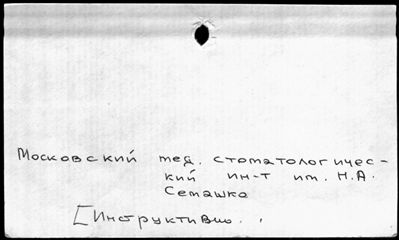 Московский мед. стоматологичес-
кий ин-т им. Н.А.
Семашко
[Инструктивно. .